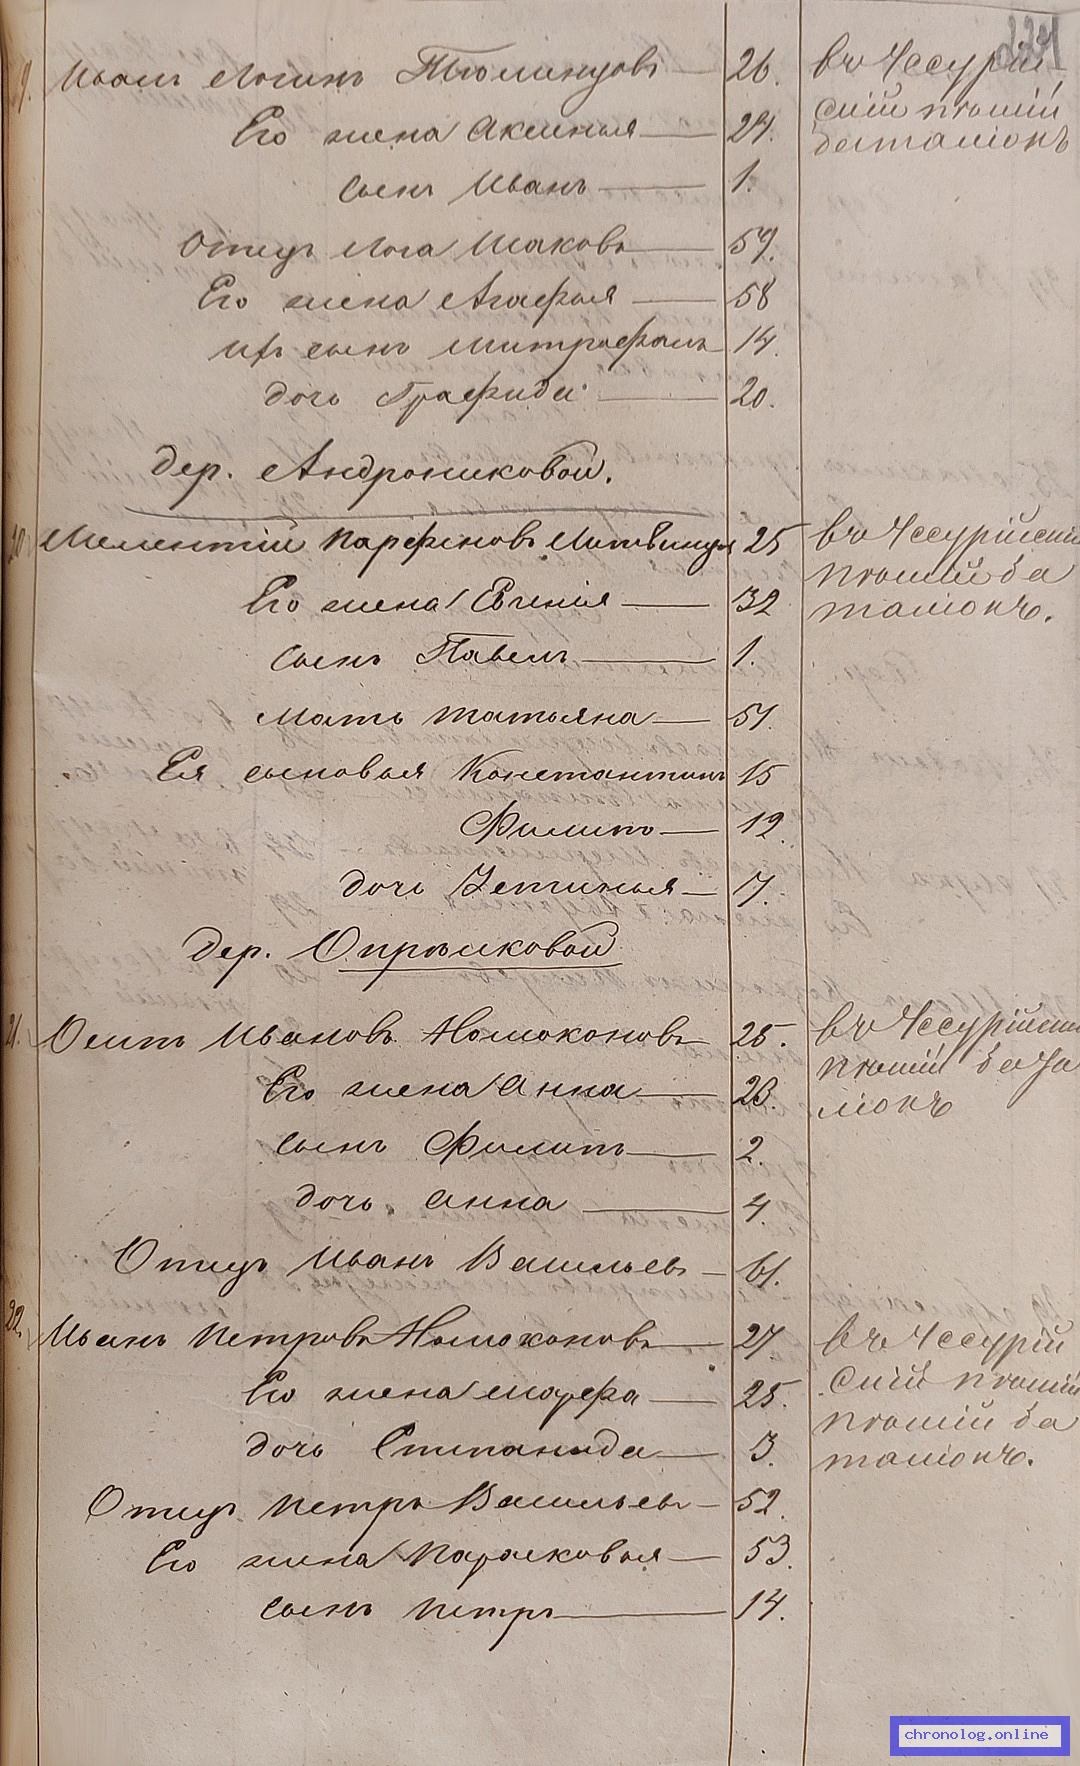 224
19. Иванъ Логинъ Тюменцовъ — 26. въ Уссурій
скій пѣшій
баталіонъ
Его жена Аксинья — 24.
Сынъ Иванъ — 1.
Отецъ Лога Исаковъ — 59.
Его жена Агафья — 58
Ихъ сынъ Митрофанъ — 14.
дочь Графида — 20.
дер. Андрониковой.
20. Мелентій Парфеновъ Литвинцовъ 25 въ Уссурійскій
пѣшій ба
таліонъ.
Его жена Евгенія — 32
Сынъ Павелъ — 1.
Мать Татьяна — 51.
Ея сыновья Константинъ 15
Филипъ — 12.
дочь Устинья — 17.
дер. Опрѣшковой
21. Осипъ Ивановъ Номоконовъ 25. въ Уссурійскій
пѣшій бата
ліонъ
Его жена Анна — 23.
Сынъ Филипъ — 2.
дочь Анна — 4.
Отецъ Иванъ Васильевъ — 61.
22. Иванъ Петровъ Номоконовъ — 27. въ Уссурій
скій пѣшій
пѣшій ба
таліонъ.
Его жена Марфа — 25.
дочь Степанида — 3.
Отецъ Петръ Васильевъ — 52.
Его жена Парасковья — 53.
Сынъ Петръ — 14.
chronolog.online